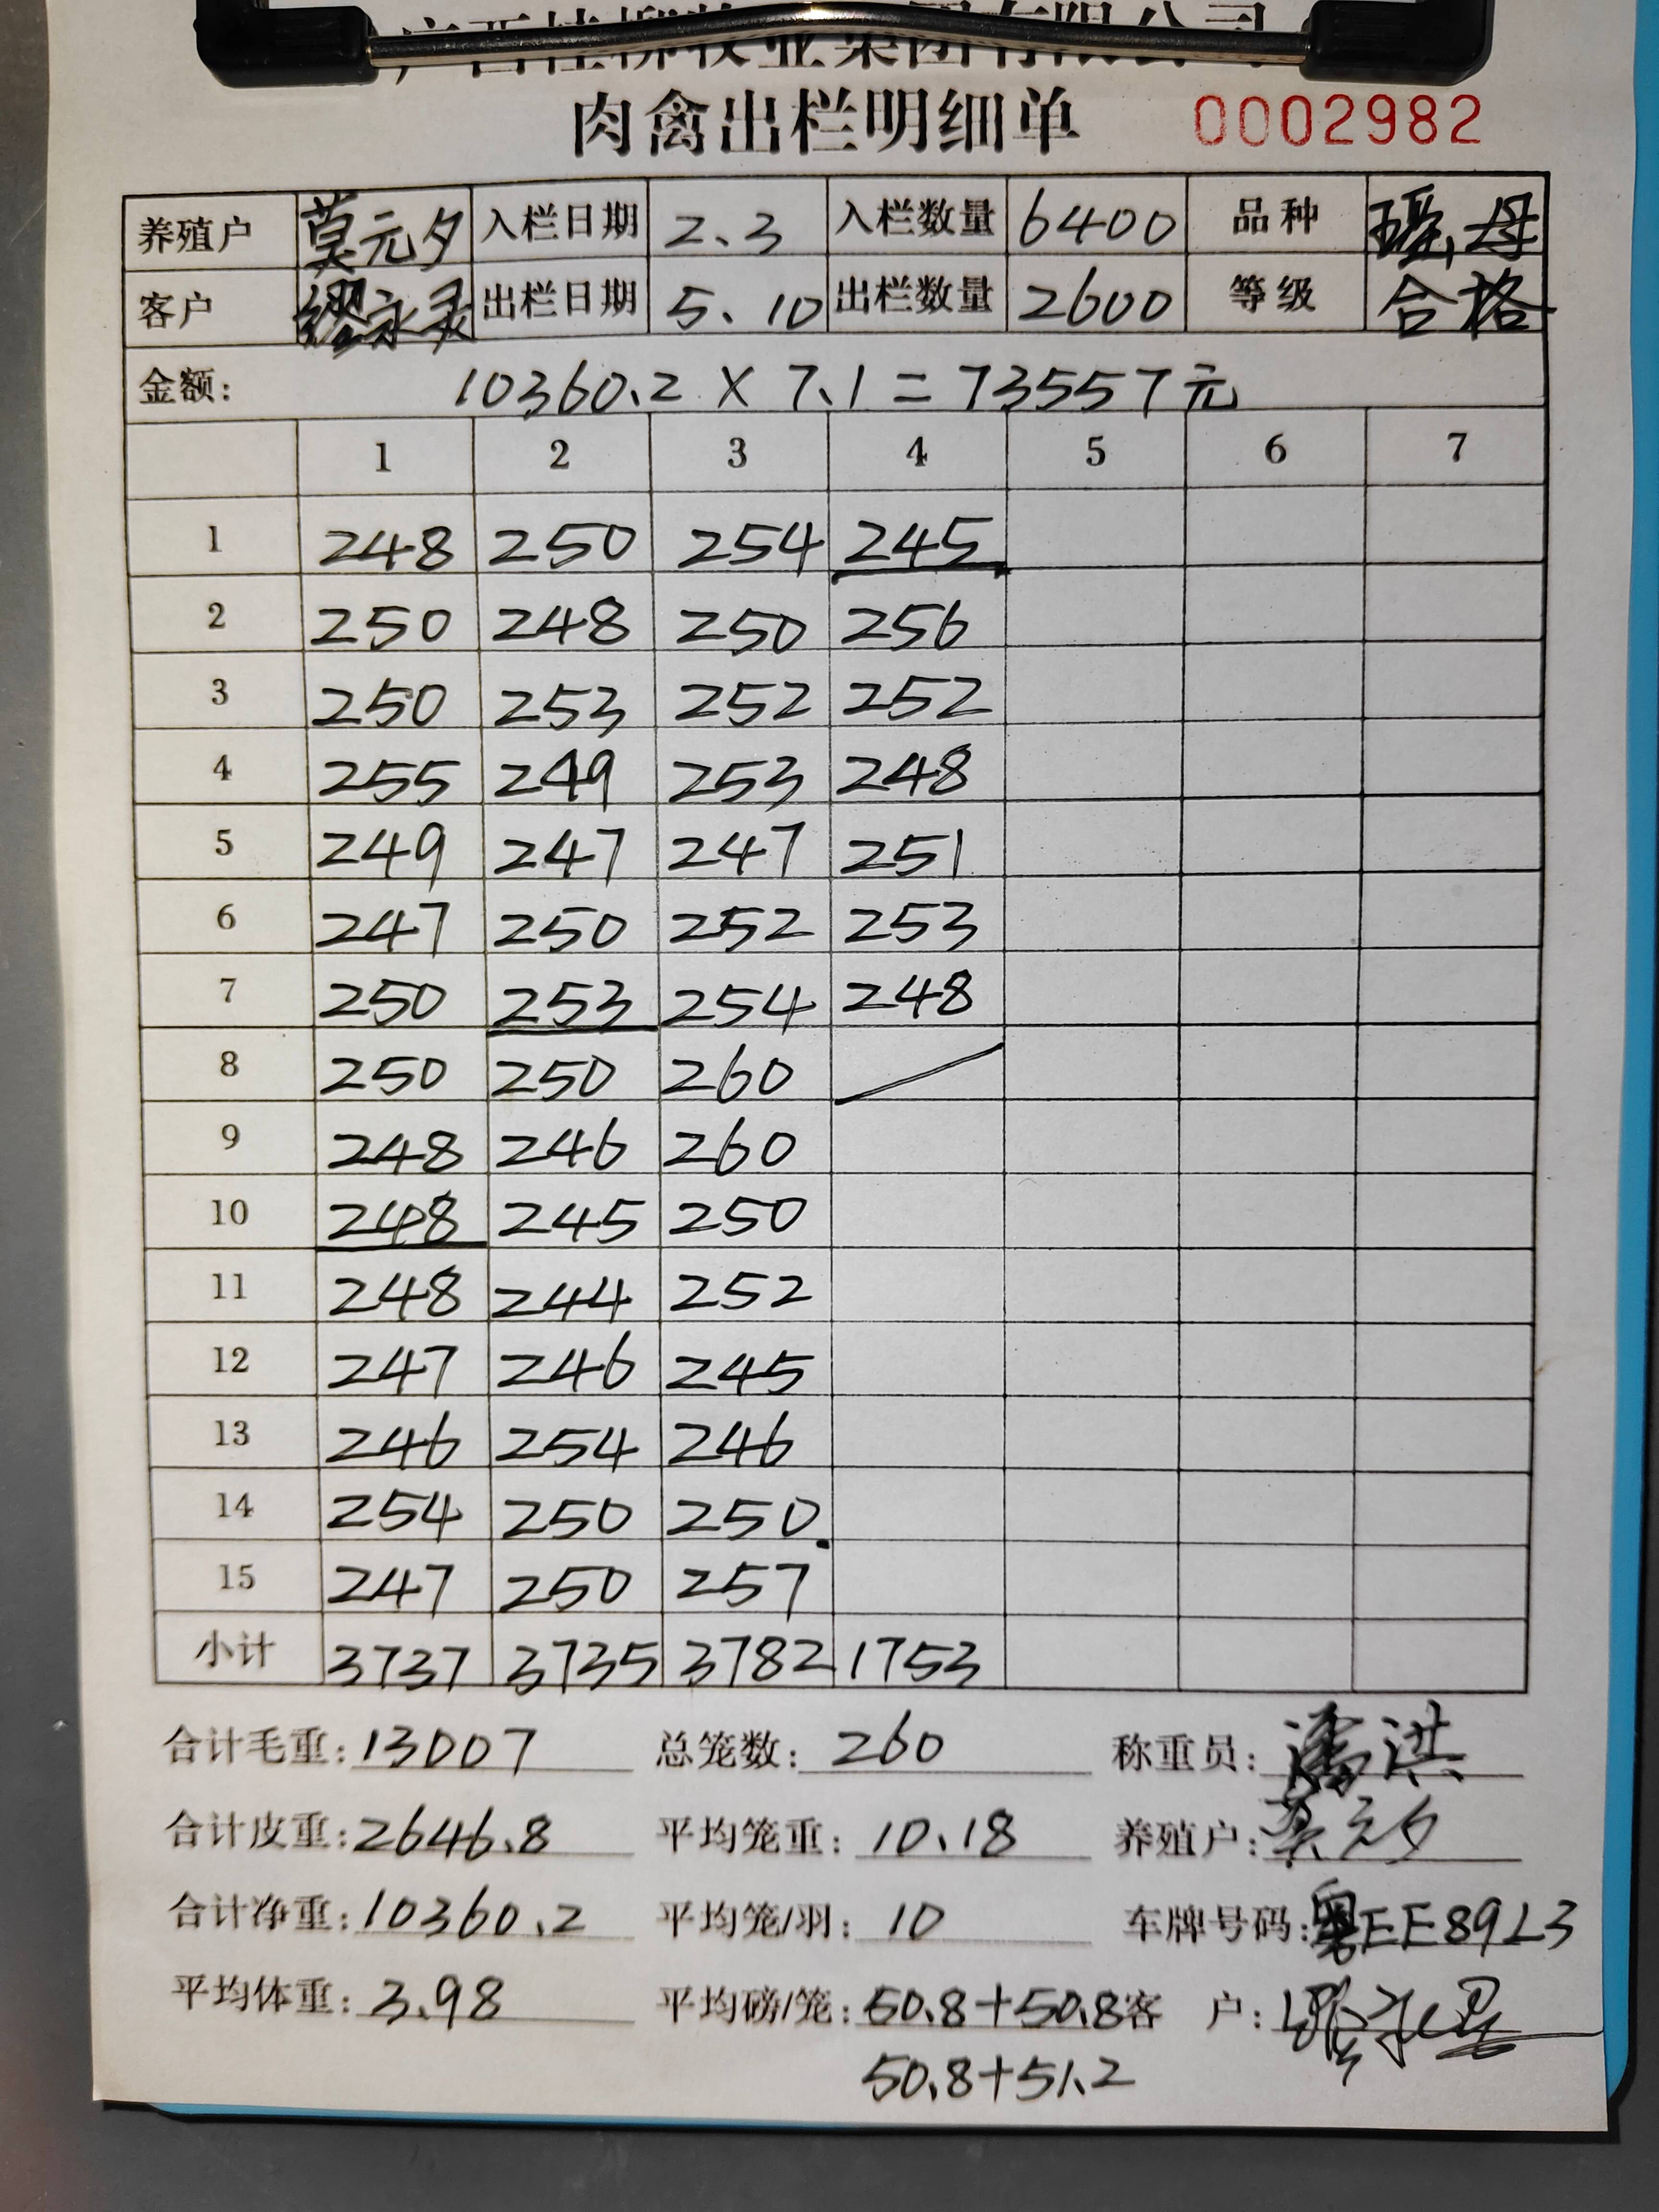 肉禽出栏明细单 0002982
养殖户 莫元夕 入栏日期 2.3 入栏数量 6400 品种 瑶,母
客户 缪永灵 出栏日期 5.10 出栏数量 2600 等级 合格
金额: 10360.2 × 7.1 = 73557元
1 2 3 4 5 6 7
1 248 250 254 245
2 250 248 250 256
3 250 253 252 252
4 255 249 253 248
5 249 247 247 251
6 247 250 252 253
7 250 253 254 248
8 250 250 260
9 248 246 260
10 248 245 250
11 248 244 252
12 247 246 245
13 246 254 246
14 254 250 250
15 247 250 257
小计 3737 3735 3782 1753
合计毛重: 13007 总笼数: 260 称重员: 潘洪
合计皮重: 2646.8 平均笼重: 10.18 养殖户: 莫元夕
合计净重: 10360.2 平均笼/羽: 10 车牌号码: 粤EE89L3
平均体重: 3.98 平均磅/笼: 50.8+50.8 客 户:
50.8+51.2